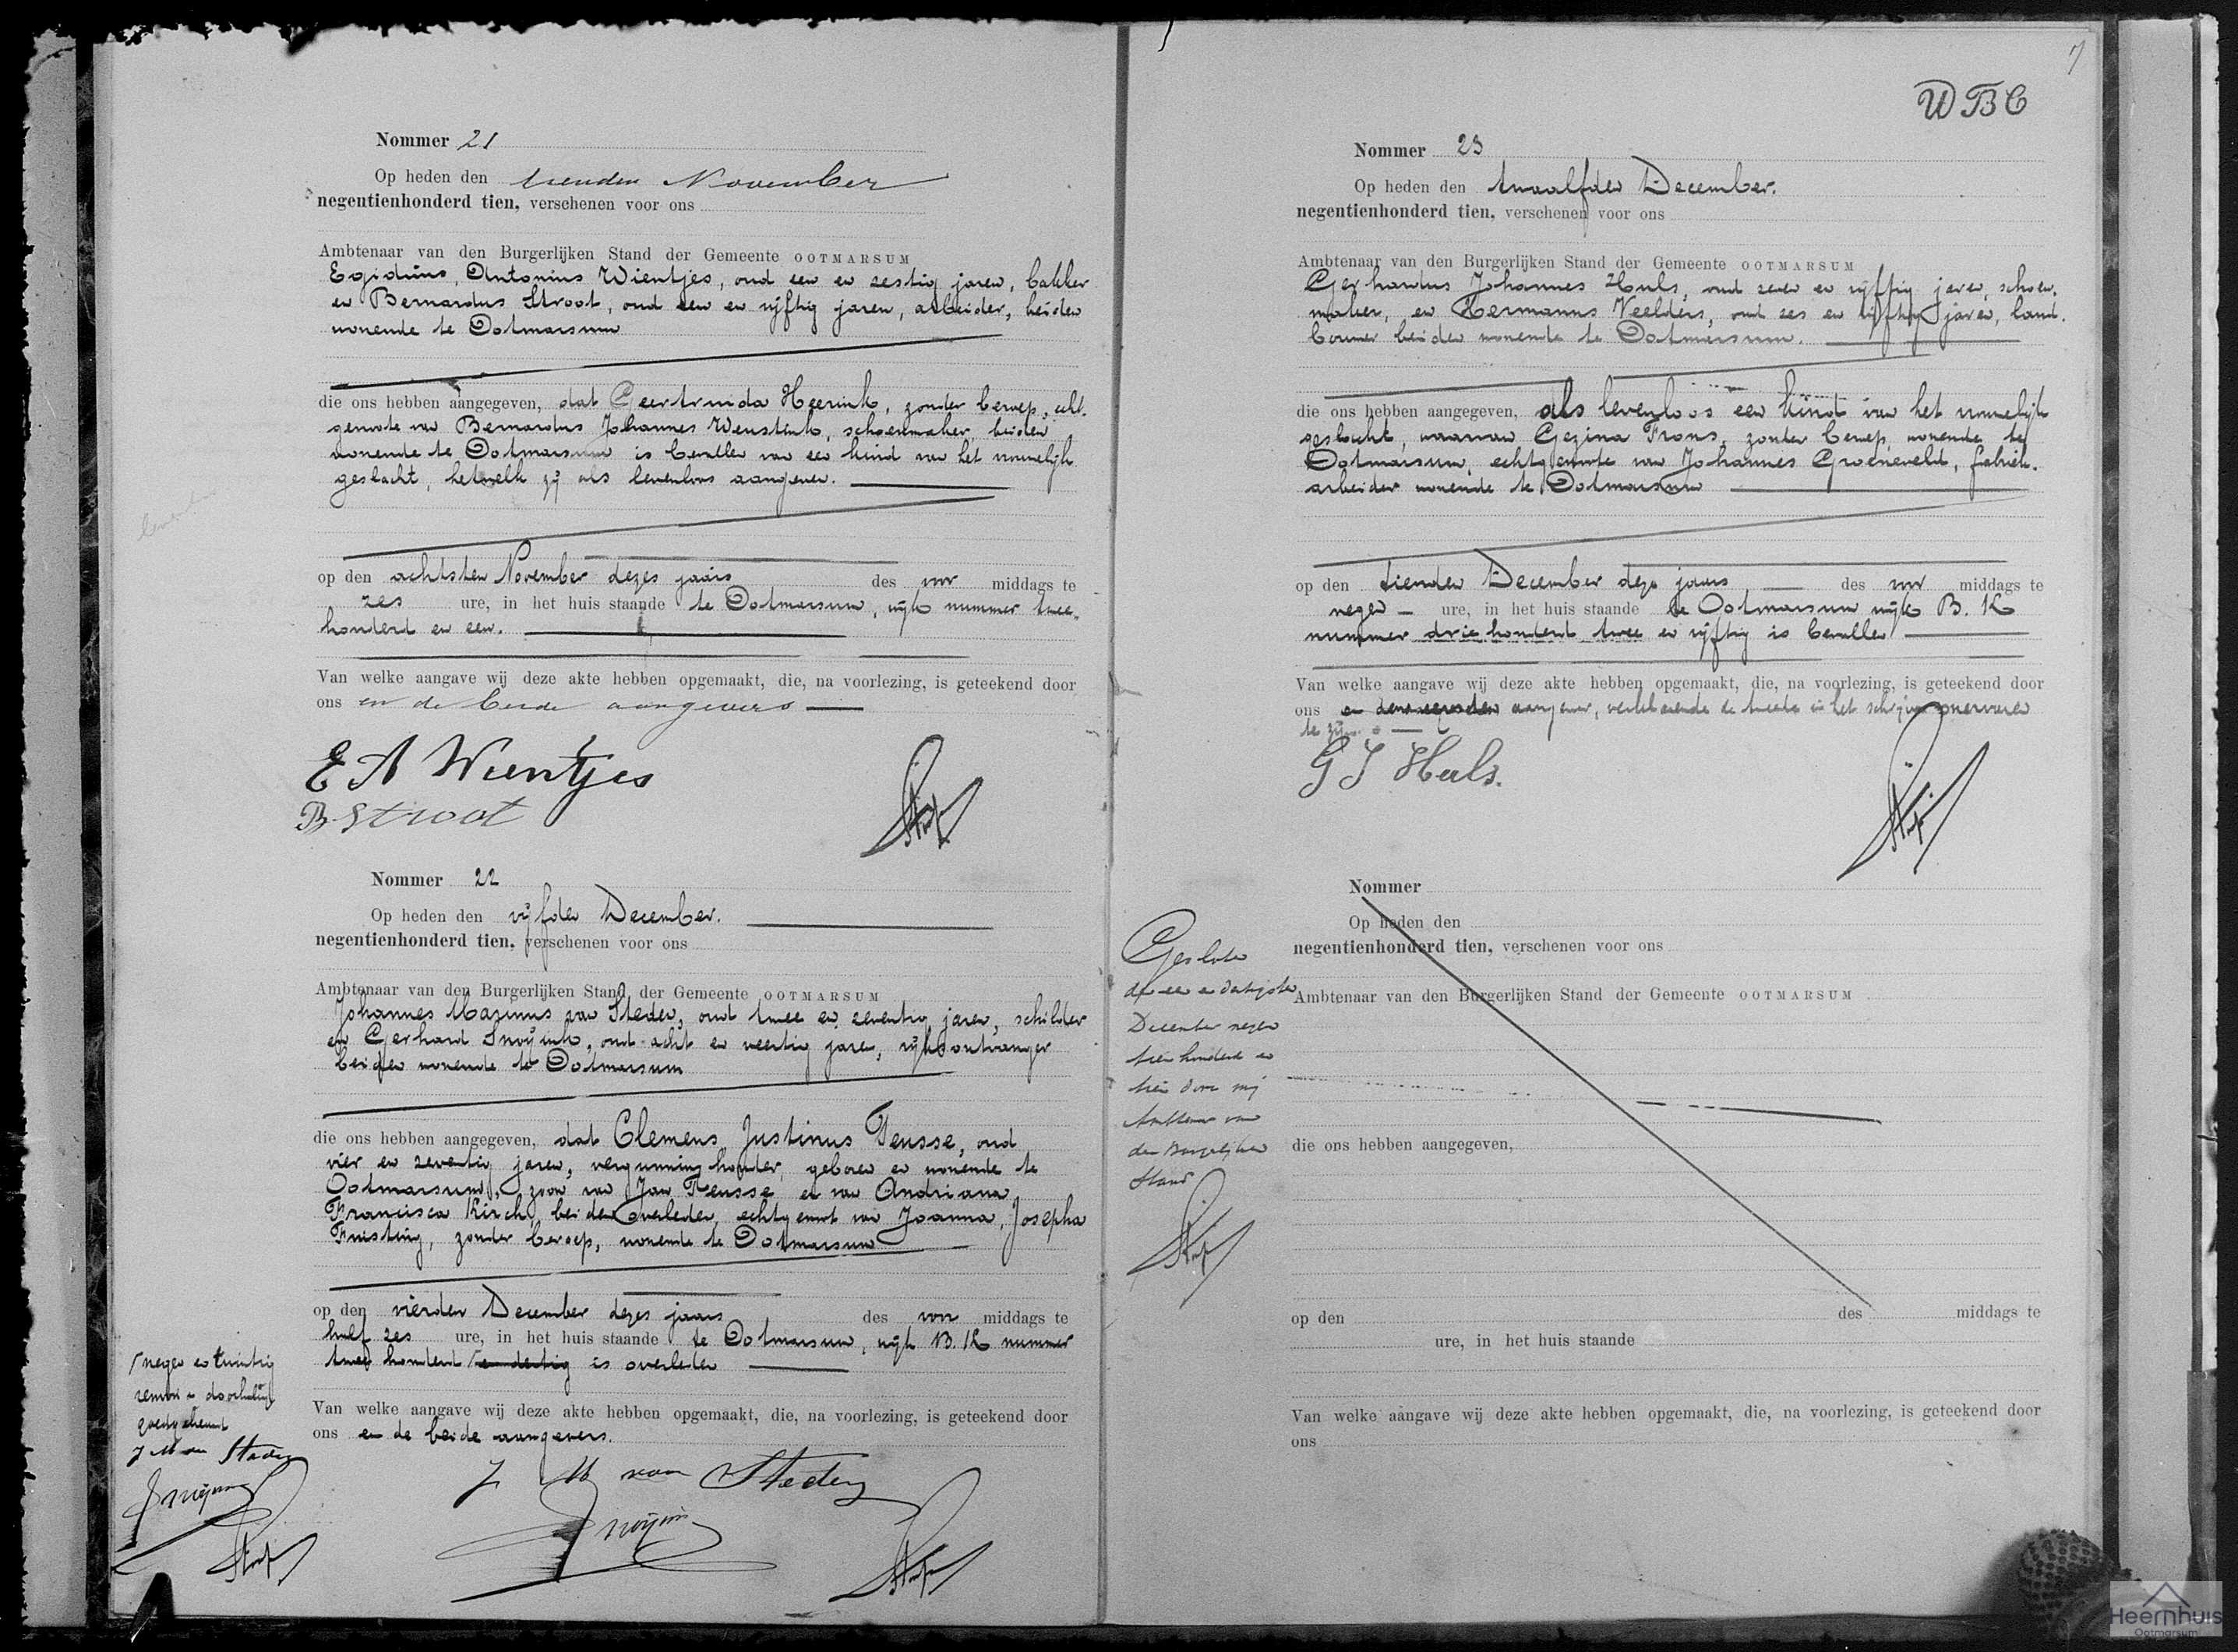 Nommer 21
Op heden den tienden November
negentienhonderd tien, verschenen voor ons
Ambtenaar van den Burgerlijken Stand der Gemeente OOTMARSUM
Egidius, Antonius Wientjes, oud een en zestig jaren, bakker
en Bernardus Stroot, oud een en vijftig jaren, arbeider, beiden
wonende te Ootmarsum
die ons hebben aangegeven, dat Geertruida Heerink, zonder beroep, echt-
genoote van Bernardus Johannes Weustink, schoenmaker, beiden
wonende te Ootmarsum is bevallen van een kind van het vrouwelijk
geslacht, hetwelk zij als levenloos aangeven.
op den achtsten November dezes jaars des voor middags te
zes ure, in het huis staande te Ootmarsum, wijk nummer twee-
honderd en een.
Van welke aangave wij deze akte hebben opgemaakt, die, na voorlezing, is geteekend door
ons en de beide aangevers
E A Wientjes
B Stroot
Nommer 22
Op heden den vijfden December.
negentienhonderd tien, verschenen voor ons
Ambtenaar van den Burgerlijken Stand der Gemeente OOTMARSUM
Johannes Marinus van Steden, oud twee en zeventig jaren, schilder
en Gerhard Snoijink, oud acht en veertig jaren, rijksontvanger
beiden wonende te Ootmarsum
die ons hebben aangegeven, dat Clemens Justinus Teusse, oud
vier en zeventig jaren, vergunninghouder, geboren en wonende te
Ootmarsum, zoon van Jan Teusse en van Andriana
Francisca Kirch, beiden overleden, echtgenoot van Joanna, Josepha
wonende te Ootmarsum
zonder beroep,
op den vierden December dezes jaars des voor middags te
half zes ure, in het huis staande te Ootmarsum, wijk B. K nummer
twee honderd is overleden
Van welke aangave wij deze akte hebben opgemaakt, die, na voorlezing, is geteekend door
ons en de beide aangevers.
negen en twintig
goedgekeurd
J M van Steden
J M van Steden
7
WBC
Nommer 23
Op heden den twaalfden December.
negentienhonderd tien, verschenen voor ons
Ambtenaar van den Burgerlijken Stand der Gemeente OOTMARSUM
Gerhardus Johannes Huls, oud zeven en vijftig jaren, schoen-
maker, en Hermannus Veelders, oud zes en vijftig jaren, land-
bouwer beiden wonende te Ootmarsum.
die ons hebben aangegeven, als levenloos een kind van het vrouwelijk
geslacht, waarvan Gezina Frons, zonder beroep, wonende te
Ootmarsum, echtgenoote van Johannes Groeneveld, fabriek-
arbeider wonende te Ootmarsum
op den tienden December dezes jaars des voor middags te
negen ure, in het huis staande te Ootmarsum wijk B. K
nummer drie honderd twee en vijftig is bevallen
Van welke aangave wij deze akte hebben opgemaakt, die, na voorlezing, is geteekend door
ons en den eersten aangever, verklarende de tweede in het schrijven onervaren
te zijn.
G J Huls.
Gesloten
den een en dertigsten
December negen
tien honderd en
tien door mij
Ambtenaar van
den Burgerlijken
Stand
Nommer
Op heden den
negentienhonderd tien, verschenen voor ons
Ambtenaar van den Burgerlijken Stand der Gemeente OOTMARSUM
die ons hebben aangegeven,
op den des middags te
ure, in het huis staande
Van welke aangave wij deze akte hebben opgemaakt, die, na voorlezing, is geteekend door
ons
Heernhuis
Ootmarsum